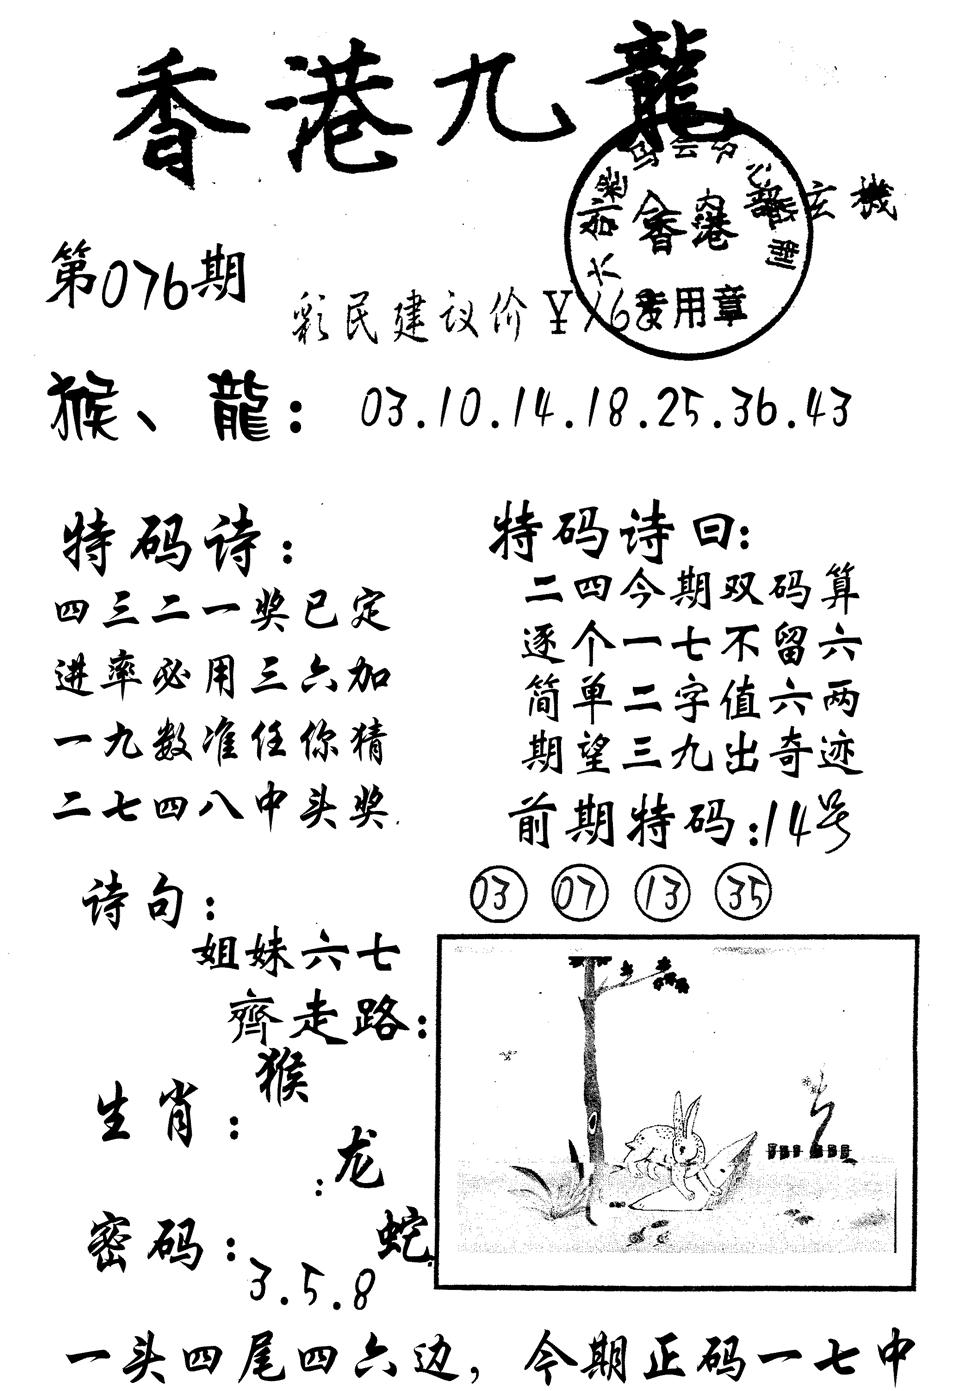 香港九龍
玄機
第076期
彩民建议价¥168
香港
专用章
猴、龍: 03.10.14.18.25.36.43
特码诗:
四三二一奖已定
进率必用三六加
一九数准任你猜
二七四八中头奖.
特码诗曰:
二四今期双码算
逐个一七不留六
简单二字值六两
期望三九出奇迹
前期特码:14号
03 07 13 35
诗句:
姐妹六七
齊走路:
猴
生肖:
:龙
蛇
密码:
3.5.8
一头四尾四六边,今期正码一七中